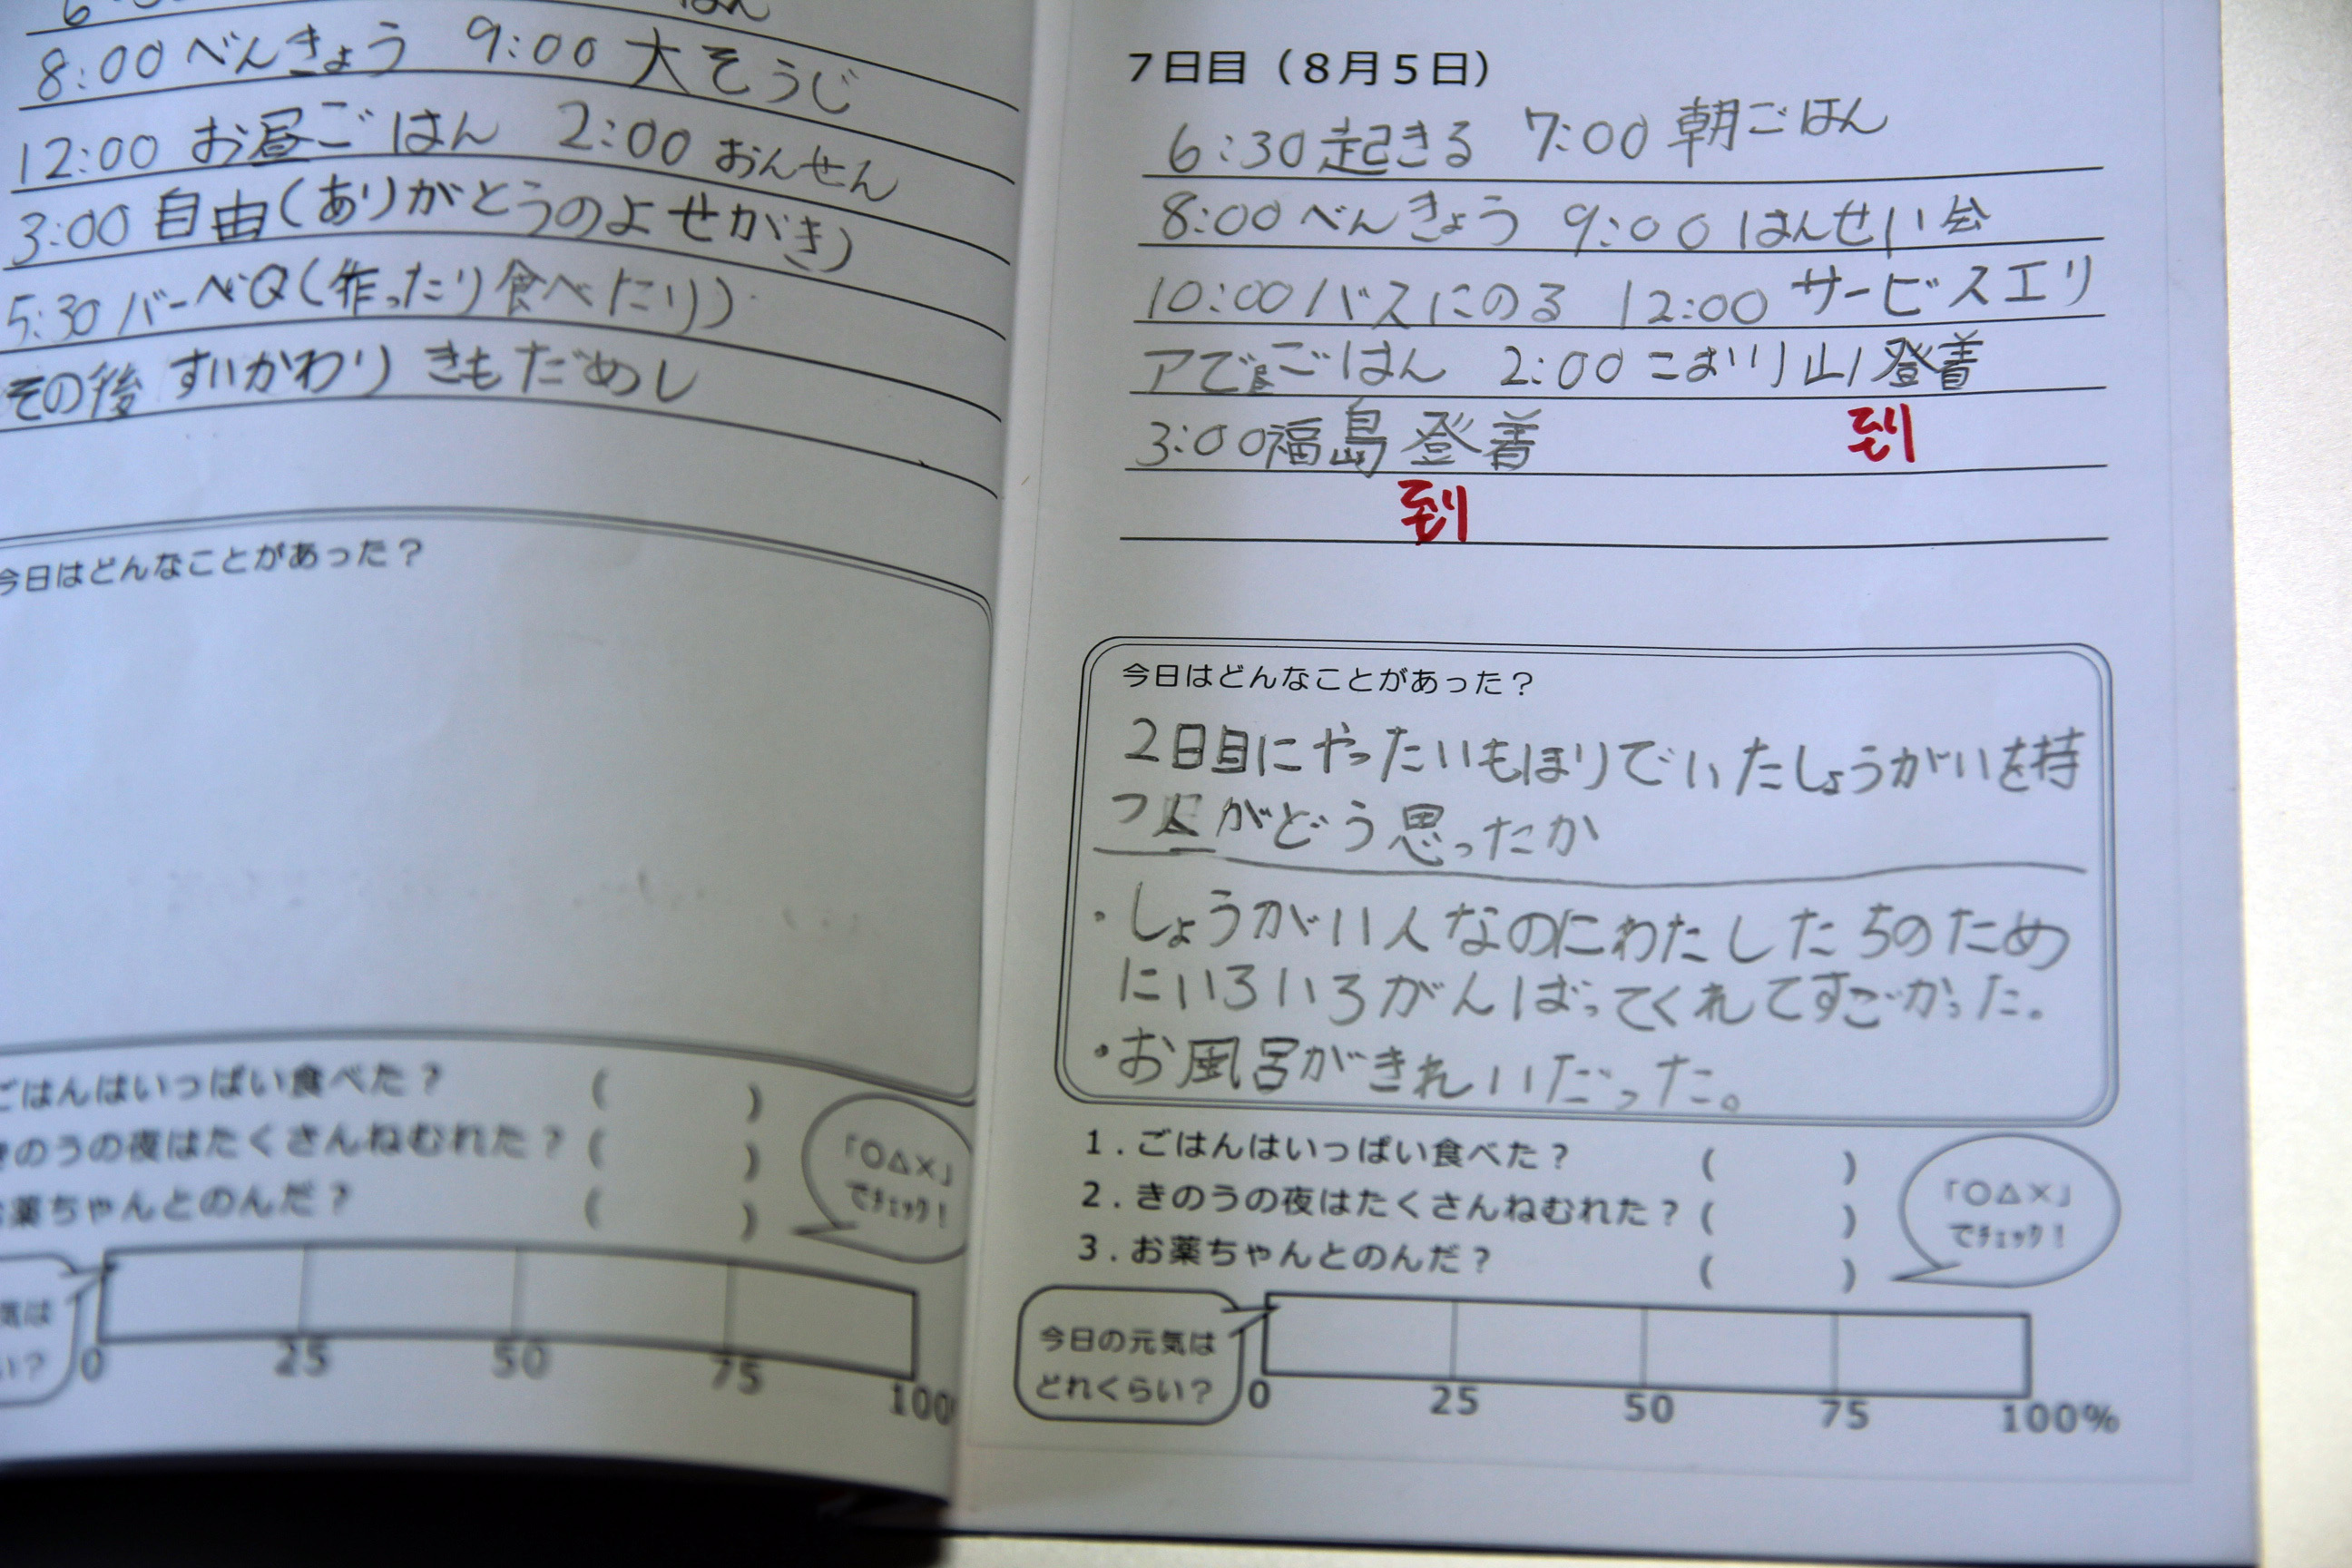 はん
8:00 べんきょう 9:00 大そうじ
12:00 お昼ごはん 2:00 おんせん
3:00 自由(ありがとうのよせがき)
5:30 バーベQ(作ったり食べたり)
その後 すいかわり きもだめし
今日はどんなことがあった?
ごはんはいっぱい食べた? ( )
きのうの夜はたくさんねむれた? ( )
お薬ちゃんとのんだ? ( )
「○△×」
でチェック!
気は
い?
0 25 50 75 100%
7日目(8月5日)
6:30 起きる 7:00 朝ごはん
8:00 べんきょう 9:00 はんせい会
10:00 バスにのる 12:00 サービスエリ
アで昼ごはん 2:00 こおり山登着
到
3:00 福島登着
到
今日はどんなことがあった?
2日目にやったいもほりでいたしょうがいを持
つ人がどう思ったか
・しょうがい人なのにわたしたちのため
にいろいろがんばってくれてすごかった。
・お風呂がきれいだった。
1.ごはんはいっぱい食べた? ( )
2.きのうの夜はたくさんねむれた? ( )
3.お薬ちゃんとのんだ? ( )
「○△×」
でチェック!
今日の元気は
どれくらい?
0 25 50 75 100%